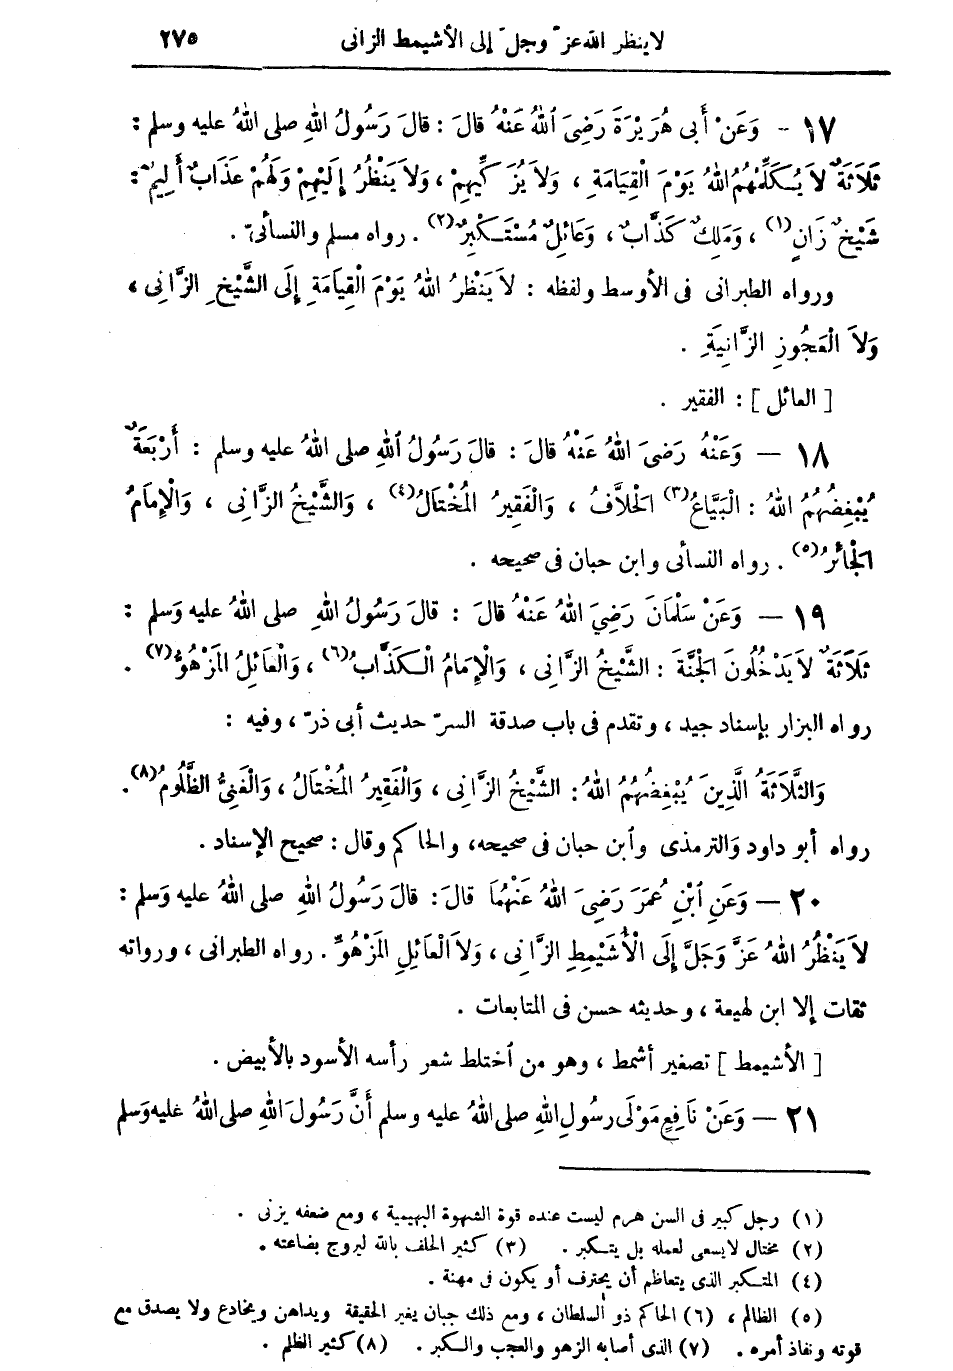 لا ينظر الله عزّ وجلّ إلى الأشيمط الزانى ٢٧٥
١٧ - وَعَنْ أَبى هُرَيْرَةَ رَضِىَ اللهُ عَنْهُ قالَ : قالَ رَسُولُ اللهِ صلى اللهُ عليه وسلم :
ثَلَاثَةٌ لاَ يُكَلِّمُهُمُ اللهُ يَوْمَ القِيَامَةِ ، وَلاَ يُزَكِّيهِمْ ، وَلاَ يَنْظُرُ إِلَيْهِمْ وَلَهُمْ عَذَابٌ أَلِيمٌ :
شَيْخٌ زَانٍ (١) ، وَمَلِكٌ كَذَّابٌ ، وَعَائِلٌ مُسْتَكْبِرٌ (٢) . رواه مسلم والنسائىّ .
ورواه الطبرانى فى الأوسط ولفظه : لاَ يَنْظُرُ اللهُ يَوْمَ الْقِيَامَةِ إِلَى الشَّيْخِ الزَّانِى ،
وَلاَ الْعَجُوزِ الزَّانِيَةِ .
[ العائل ] : الفقير .
١٨ — وَعَنْهُ رَضىَ اللهُ عَنْهُ قالَ : قالَ رَسُولُ اللهِ صلى اللهُ عليه وسلم : أَرْبَعَةٌ
يُبْغِضُهُمُ اللهُ : الْبَيَّاعُ (٣) الحَلاَّفُ ، وَالْفَقِيرُ المُخْتَالُ (٤) ، وَالشَّيْخُ الزَّانِى ، وَالْإِمَامُ
الجَائرُ (٥) . رواه النسائى وابن حبان فى صحيحه .
١٩ — وَعَنْ سَلْمَانَ رَضِيَ اللهُ عَنْهُ قالَ : قالَ رَسُولُ اللهِ صلى اللهُ عليه وَسلم :
ثَلَاثَةٌ لاَ يَدْخُلُونَ الجَنَّةَ : الشَّيْخُ الزَّانِى ، وَالْإِمَامُ الْكَذَّابُ (٦) ، وَالْعَائِلُ المَزْهُوُّ (٧) .
رواه البزار بإسناد جيد ، وتقدم فى باب صدقة السرّ حديث أبى ذرّ ، وفيه :
وَالثَّلَاثَةُ الَّذِينَ يُبْغِضُهُمُ اللهُ : الشَّيْخُ الزَّانِى ، وَالْفَقِيرُ المُخْتَالُ ، وَالْغَنِىُّ الظَّلُومُ (٨) .
رواه أبو داود وَالترمذى وَابن حبان فى صحيحه، والحاكم وقال : صحيح الإسناد .
٢٠ — وَعَنِ ابْنِ عُمَرَ رَضِىَ اللهُ عَنْهُمَا قالَ : قالَ رَسُولُ اللهِ صلى اللهُ عليه وَسلم :
لاَ يَنْظُرُ اللهُ عَزَّ وَجَلَّ إِلَى الْأُشَيْمِطِ الزَّانِى ، وَلاَ الْعَائِلِ المَزْهُوِّ . رواه الطبرانى ، ورواته
ثقات إلا ابن لهيعة ، وحديثه حسن فى المتابعات .
[ الأشيمط ] تصغير أشمط ، وهو من اختلط شعر رأسه الأسود بالأبيض .
٢١ — وَعَنْ نَافِعٍ مَوْلَى رسُولِ اللهِ صلى اللهُ عليه وسلم أَنَّ رَسُولَ اللهِ صلى اللهُ عليه وَسلم
(١) رجل كبير فى السن هرم ليست عنده قوة الشهوة البهيمية ، ومع ضعفه يزنى .
(٢) مختال لا يسعى لعمله بل يتكبر . (٣) كثير الحلف بالله ليروج بضاعته .
(٤) المتكبر الذى يتعاظم أن يحترف أو يكون فى مهنة .
(٥) الظالم ، (٦) الحاكم ذو السلطان ، ومع ذلك جبان يغير الحقيقة ويداهن ويخادع ولا يصدق مع
قوته ونفاذ أمره . (٧) الذى أصابه الزهو والعجب والكبر . (٨) كثير الظلم .